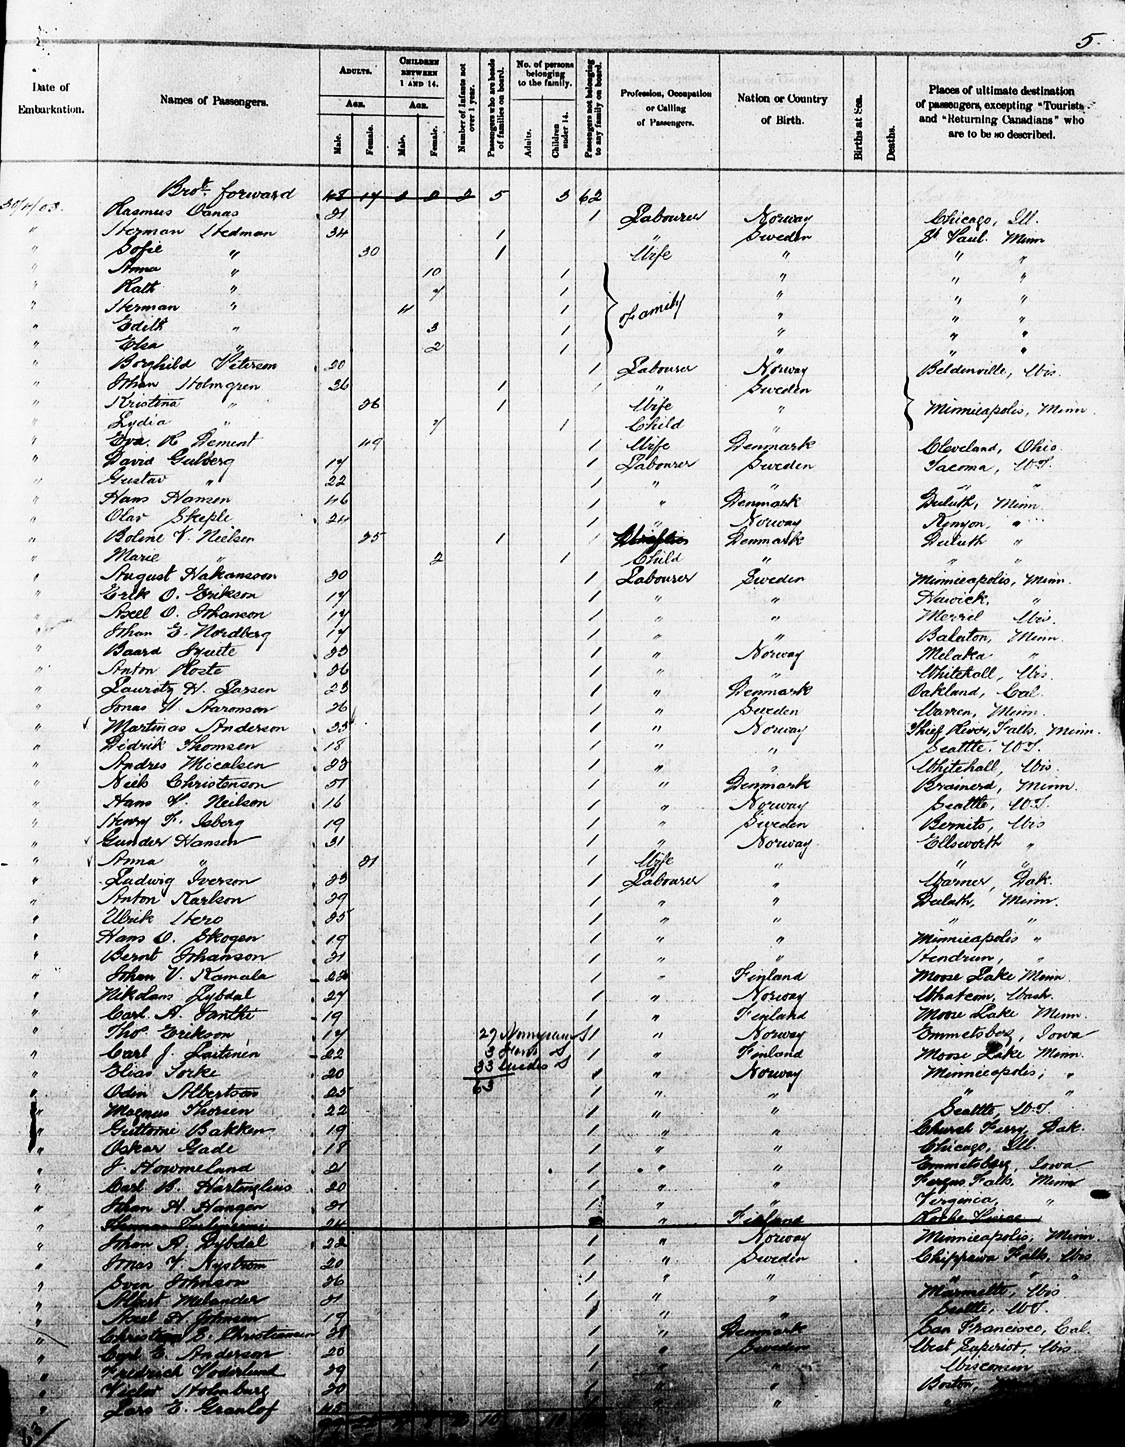 5.
Date of Embarkation. Names of Passengers. ADULTS. Age. Male. Female. CHILDREN BETWEEN 1 AND 14. Age. Male. Female. Number of Infants not over 1 year. Passengers who are heads of families on board. No. of persons belonging to the family. Adults. Children under 14. Passengers not belonging to any family on board. Profession, Occupation or Calling of Passengers. Nation or Country of Birth. Births at Sea. Deaths. Places of ultimate destination of passengers, excepting "Tourists and "Returning Canadians" who are to be so described.
Brot. forward 48 17 2 2 2 5 3 62
Rasmus Oanas 21 1 Labourer Norway Chicago, Ill.
" Herman Hedman 34 1 " Sweden St Paul. Minn
" Sofie " 30 1 Wife " " "
" Anna " 10 1 " " "
" Kath " 7 1 " " "
" Herman " 4 1 Family " " "
" Edith " 3 1 " " "
" Elsa " 2 1 " " "
" Borghild Peterson 20 1 Labourer Norway Beldenville, Wis.
" Johan Holmgren 26 1 " Sweden
" Kristina " 26 1 Wife " Minnieapolis, Minn.
" Lydia " 7 1 Child "
" Eva. K Dement 49 1 Wife Denmark Cleveland, Ohio
" David Gulberg 17 1 Labourer Sweden Tacoma, W.T.
" Gustav " 22 1 " " " "
" Hans Hansen 46 1 " Denmark Duluth, Minn
" Olav Skeple 24 1 " Norway Kenyon, "
" Boline V. Nielsen 25 1 Denmark Duluth "
" Marie " 2 1 Child " " "
" August Hakansson 20 1 Labourer Sweden Minnieapolis, Minn.
" Erik O. Erikson 17 1 " " Hewick, "
" Axel O. Johanson 17 1 " " Merril Wis.
" Johan E. Nordberg 17 1 " " Balaton, Minn.
" Baard 23 1 " Norway Melaka "
" Anton Roste 26 1 " " Whitehall, Wis.
" Lauritz H. Larsen 23 1 " Denmark Oakland, Cal.
" Jonas W. Aaronson 26 1 " Sweden Warren, Minn.
" Martinas Anderson 23 1 " Norway Thief River Falls, Minn.
" Didrik Thomsen 18 1 " " Seattle. W.T.
" Andres Micalsen 23 1 " " Whitehall, Wis.
" Niels Christenson 31 1 " Denmark Brainerd, Minn.
" Hans V. Neilson 16 1 " Norway Seattle, W.T.
" Henry F. Isberg 19 1 " Sweden Bernits, Wis
" Gunder Hansen 31 1 " Norway Ellsworth "
" Anna " 21 1 Wife " "
" Ludwig Iverson 23 1 Labourer " Warner, Dak.
" Anton Karlson 29 1 " " Duluth, Minn.
" Ulrik Hero 25 1 " " " "
" Hans O. Skogen 19 1 " " Minnieapolis "
" Bernt Johanson 21 1 " " Hendrum, "
" Johan V. Kamala 24 1 " Finland Moose Lake Minn.
" Nikolans Lybdal 27 1 " Norway Whatcom, Wash.
" Carl A. 19 1 " Finland Moose Lake Minn.
" Tho. Erikson 17 27 Norwegians 1 " Norway Emmetsberg, Iowa
" Carl J. Laitenen 22 3 Finns 1 " Finland Moose Lake Minn.
" Elias Torke 20 33 Swedes 1 " Norway Minnieapolis, "
63
" Odin Albertson 25 1 " " " "
" Magnus Thorsen 22 1 " " Seattle, W.T.
" Guttorne Bakken 19 1 " " Church Ferry, Dak.
" Oskar Gade 18 1 " " Chicago, Ill.
" J. Howmeland 21 1 " " Emmetsberg, Iowa
" Carl B. 20 1 " " Fergus Falls, Minn
" Johan H. Hangen 21 1 " " Virginia, "
" 24 " Finland
" Johan A. Dybdal 22 1 " Norway Minnieapolis, Minn.
" Jonas V. Nystrom 20 1 " Sweden Chippewa Falls, Wis
" Sven Johnson 26 1 " " " " "
" Albert Melander 21 1 " " Marinette, Wis
" Axel H. Johnson 19 1 " " Seattle, W.T.
" Christian E. Christiansen 28 1 " Denmark San Francisco, Cal.
" Carl E. Anderson 20 1 " Sweden West Superior, Wis.
" Fredrick Voderlund 29 1 " " Wisconsin
" Victor Holmburg 20 1 " " Boston,
" Lars E. Granlof 45 1 " "